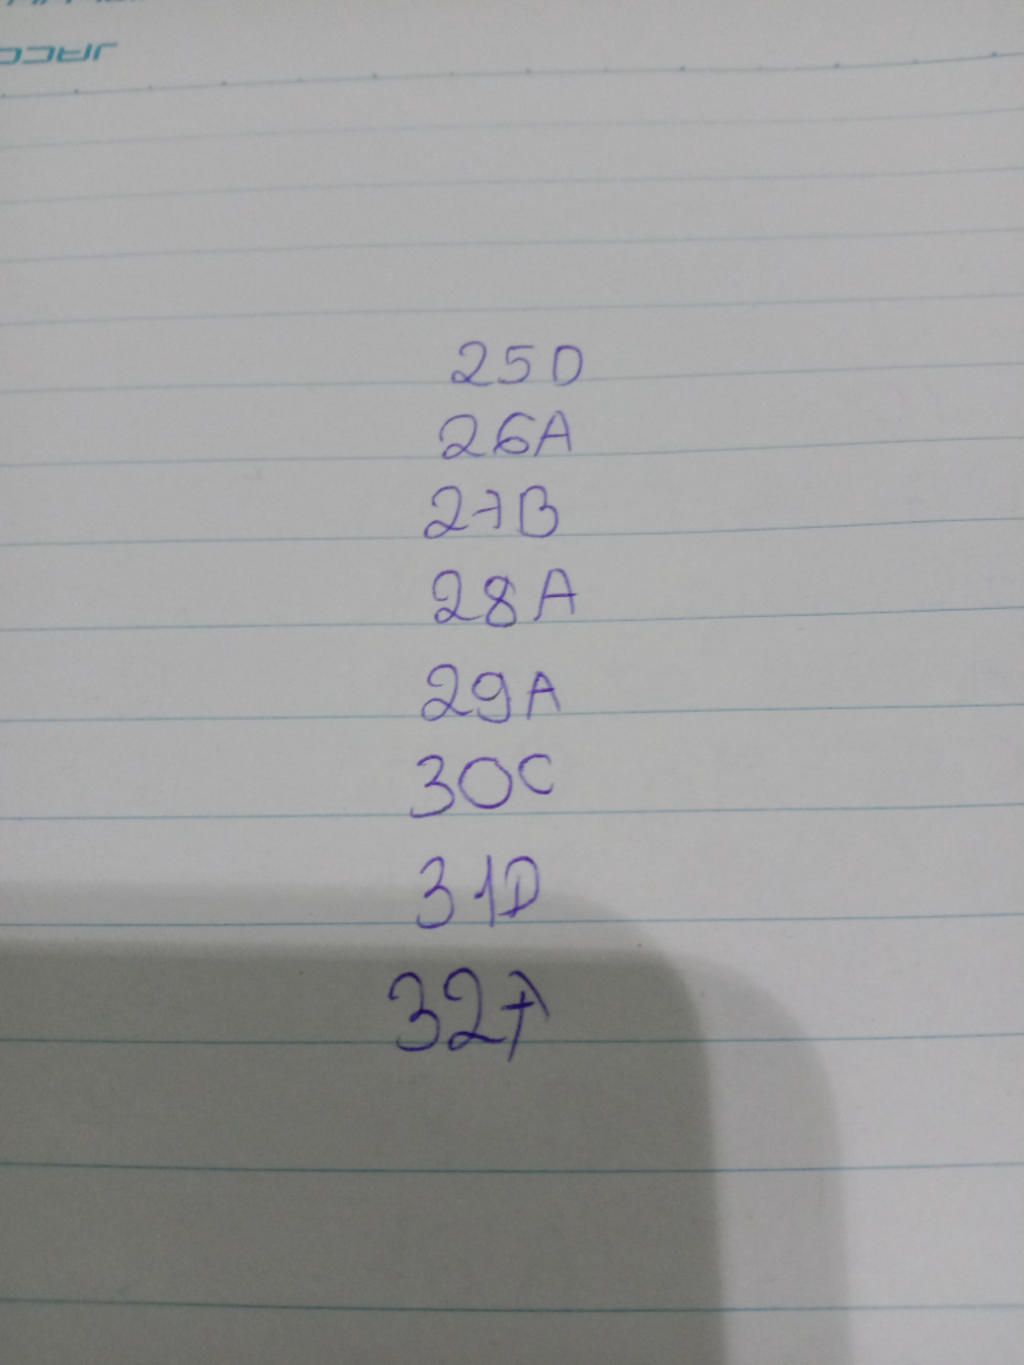 25D
26A
27B
28A
29A
30C
31D
32A